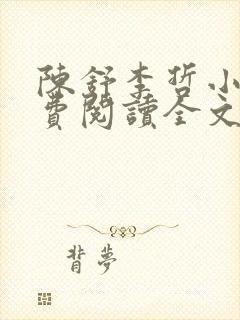 陳舒李哲小
費閱讀全文
背夢